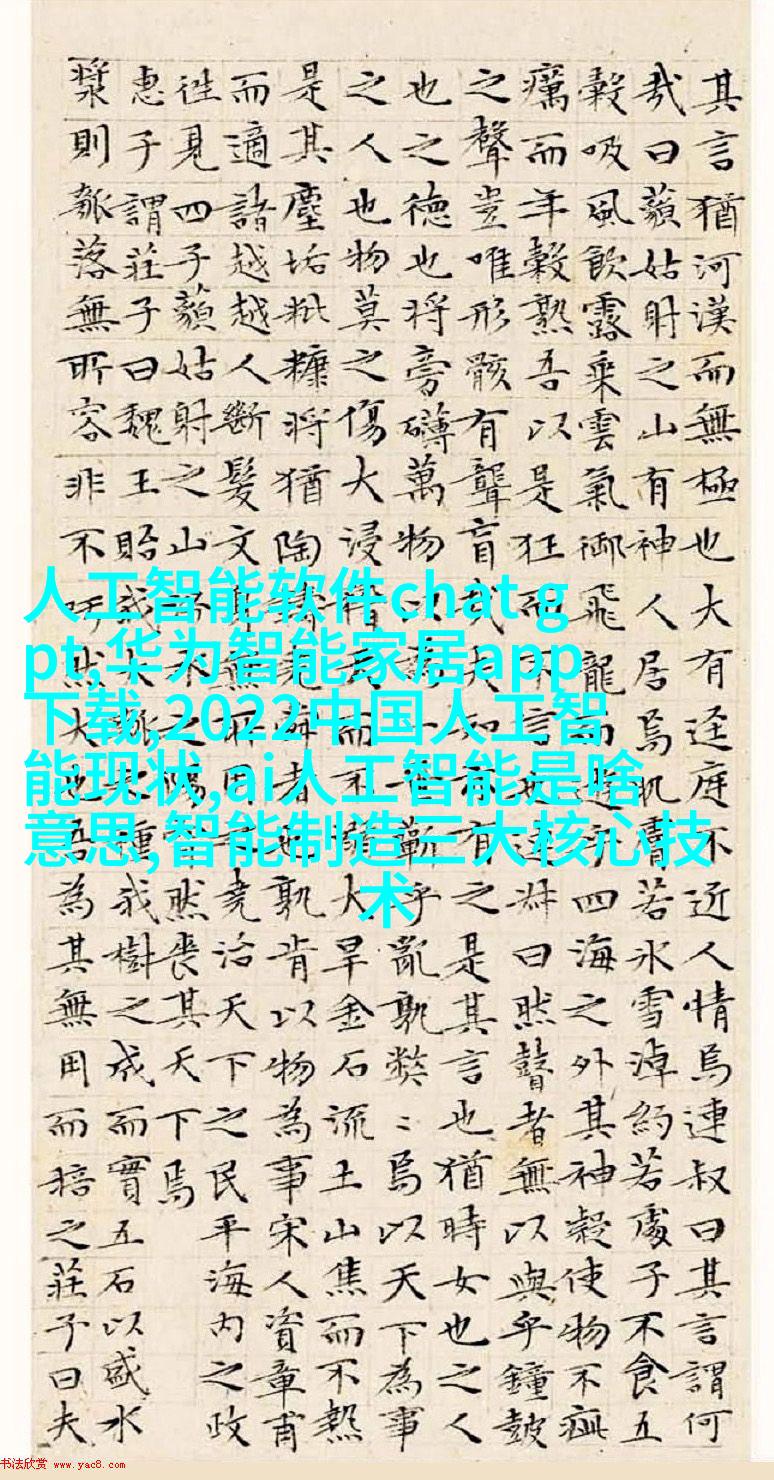 其言猶河漢而無極也大有逕庭不近人情焉連叔曰其言謂何
哉曰藐姑射之山有神人居焉肌膚若冰雪淖約若處子不食五
穀吸風飲露乘雲氣御飛龍而遊乎四海之外其神凝使物不疵
癘而年穀熟吾以是狂而不言也連叔曰然瞽者無以與乎鐘鼓
之聲豈唯形骸有聾盲哉夫知亦有之是其言也猶時女也之人
也之德也將旁礴萬物以為一蘄乎亂孰弊〻焉以天下為事
之人也物莫之傷大浸稽天而不溺大旱金石流土山焦而不熱
是其塵垢粃糠將猶陶鑄堯舜者也孰肯以物為事宋人資章甫
而適諸越越人斷髮文身無所用之堯治天下之民平海內之政
往見四子藐姑射之山汾水之陽窅然喪其天下焉
惠子謂莊子曰魏王貽我大瓠之種我樹之成而實五石以盛水
漿則瓠落無所容非不呺然大也吾為其無用而掊之莊子曰夫
人工智能软件chat g
pt,华为智能家居app
下载,2022中国人工智
能现状,ai人工智能是啥
意思,智能制造三大核心技
术
书法欣赏 www.yac8.com